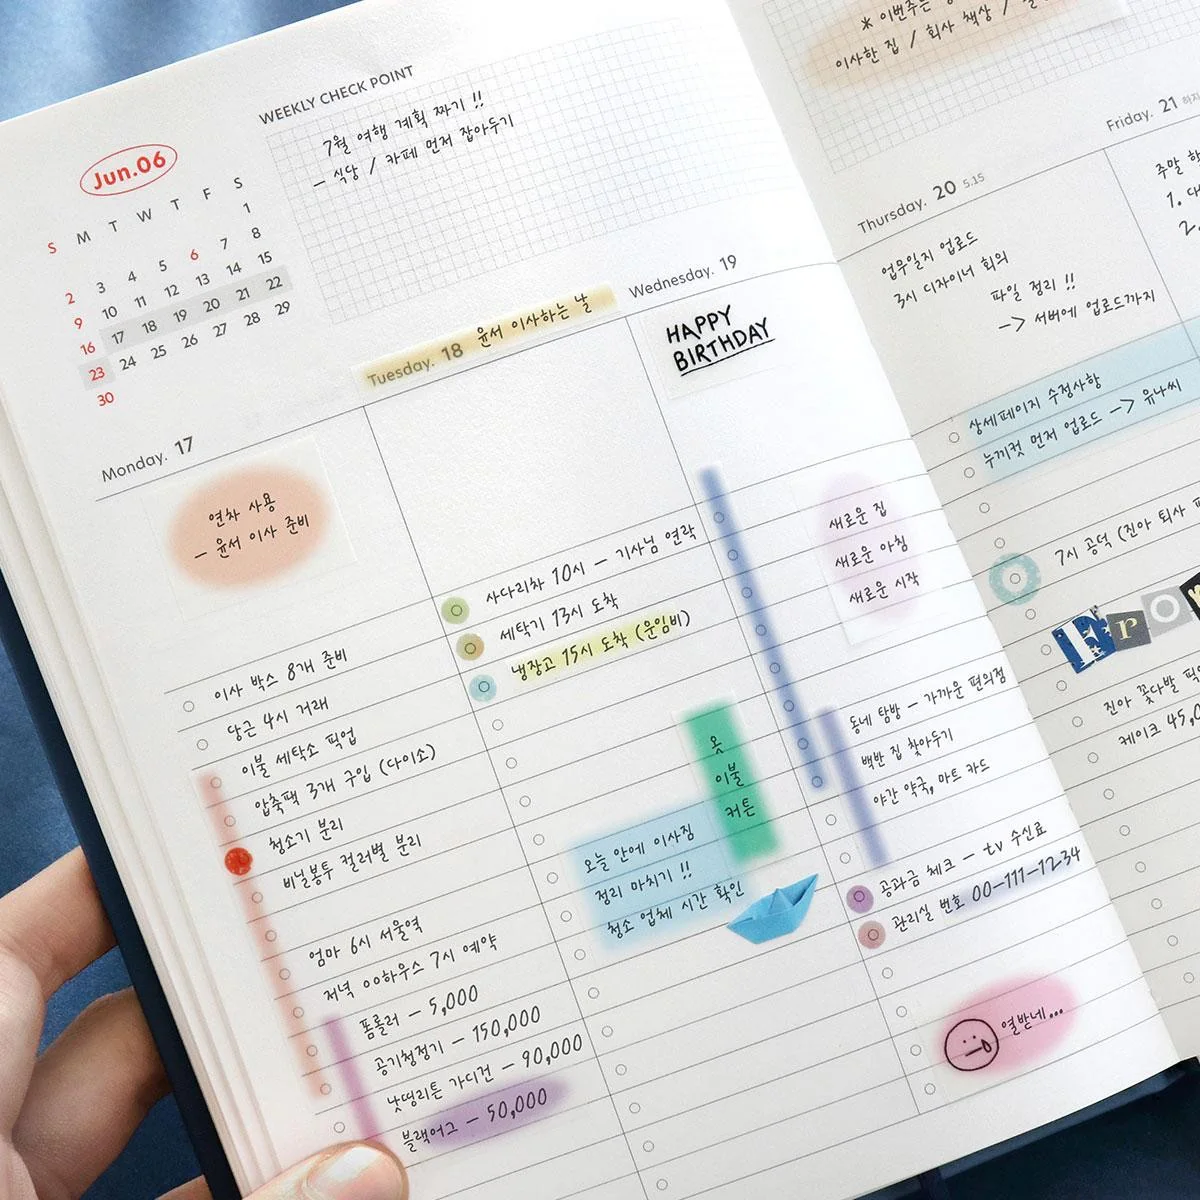 WEEKLY CHECK POINT
7월 여행 계획 짜기 !!
- 식당 / 카페 먼저 잡아두기
Jun.06
S M T W T F S
1
2 3 4 5 6 7 8
9 10 11 12 13 14 15
16 17 18 19 20 21 22
23 24 25 26 27 28 29
30
Monday. 17
연차 사용
- 윤서 이사 준비
이사 박스 8개 준비
당근 4시 거래
이불 세탁소 픽업
압축팩 3개 구입 (다이소)
청소기 분리
비닐봉투 컬러별 분리
엄마 6시 서울역
저녁 00하우스 7시 예약
폼롤러 - 5,000
공기청정기 - 150,000
낫띵리튼 가디건 - 90,000
블랙어그 - 50,000
Tuesday. 18 윤서 이사하는 날
사다리차 10시 - 기사님 연락
세탁기 13시 도착
냉장고 15시 도착 (운임비)
옷
이불
커튼
오늘 안에 이사짐
정리 마치기 !!
청소 업체 시간 확인
Wednesday. 19
HAPPY
BIRTHDAY
새로운 집
새로운 아침
새로운 시작
동네 탐방 - 가까운 편의점
백반 집 찾아두기
야간 약국, 마트 카드
공과금 체크 - tv 수신료
관리실 번호 00-111-1234
열받네...
* 이번주는
이사한 집 / 회사 책상 /
Thursday. 20 5.15
업무일지 업로드
3시 디자이너 회의
파일 정리 !!
-> 서버에 업로드까지
상세페이지 수정사항
누끼컷 먼저 업로드 -> 유나씨
7시 공덕 (진아 퇴사
Fro
진아 꽃다발
케이크 45,0
Friday. 21 하지
주말
1.
2.